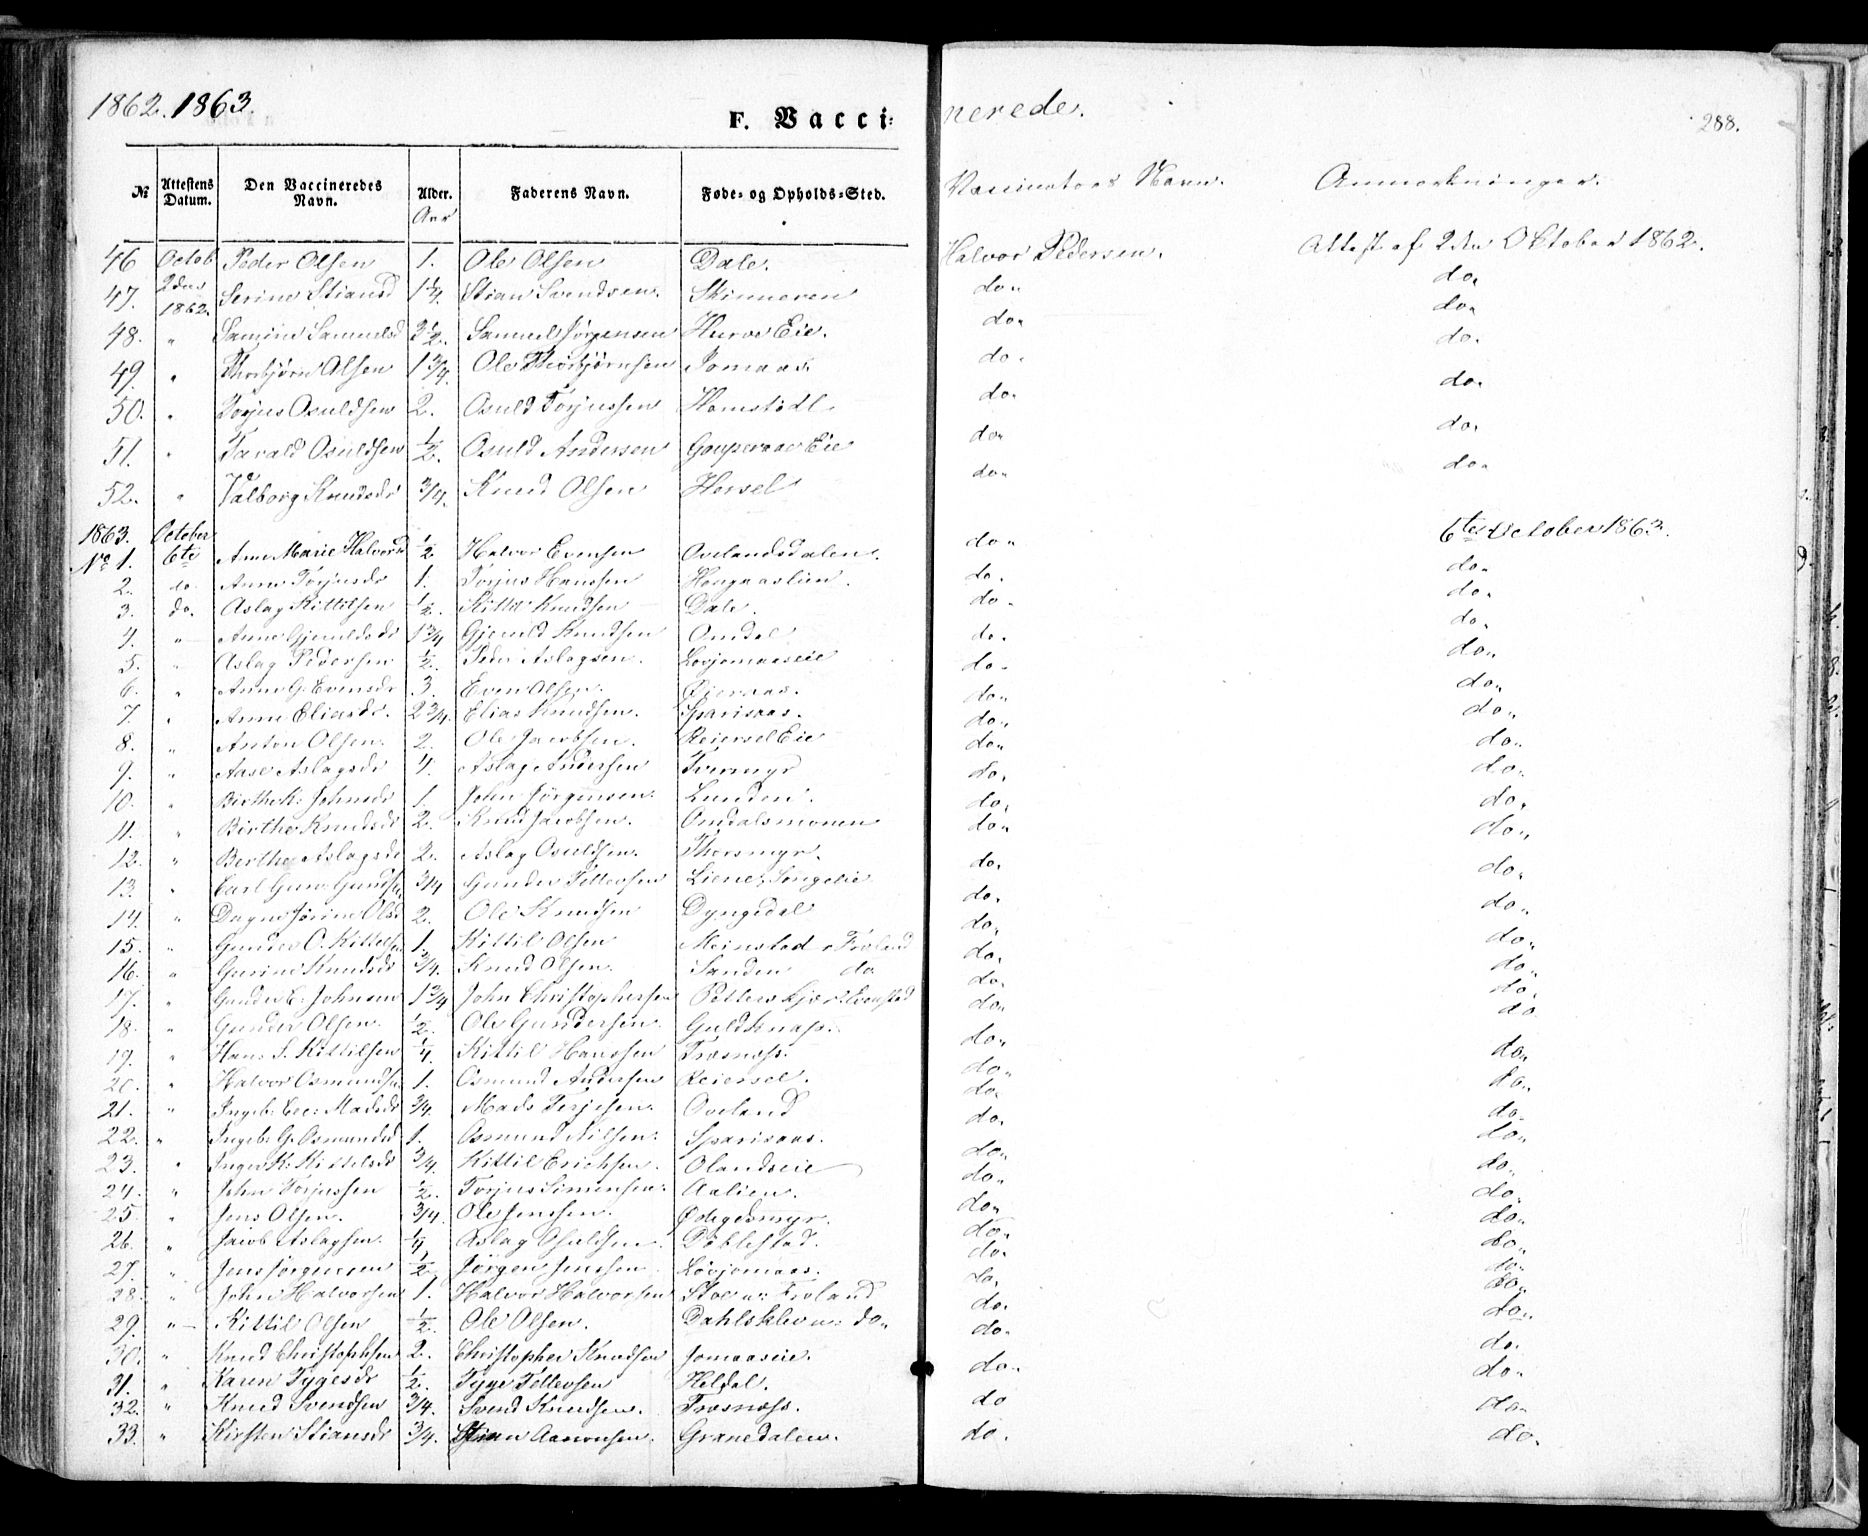 1862. 1863.
F. Vacci=
nerede.
288.
№ Attestens Datum. Den Vaccineredes Navn. Alder. Aar Faderens Navn. Føde- og Opholds-Sted. Vaccinators Navn. Anmerkninger.
46 Octob Peder Olsen 1. Ole Olsen Dale. Halvor Pedersen. Attest af 2den Oktober 1862.
47. 2den Serine Stiansd 1 1/4. Stian Svendsen. Skinneren do" do,
1862.
48. " Samine Samuelsd 3 1/2. Samuel Jørgensen Hurve Eie. do, do,
49. " Thorbjørn Olsen 1 3/4. Ole Thorbjørnsen Jomaas. do. do.
50. " Torjus Osuldsen 2. Osuld Torjussen Homstødl do, do.
51. " Tarald Osuldsen 1/2. Osuld Andersen Gauperaae Eie do" do,
52. " Valborg Knudsdr 3/4. Knud Olsen Hersel do" do"
1863. October
No 1. 6te Ane Marie Halvorsd 1/2 Halvor Evensen Ovelandsdalen. do" 6te October 1863.
2. do. Anne Torjusdr 1. Torjus Hanssen Haugaaslien. do. do"
3. do. Aslag Kittilsen 1/2. Kittil Knudsen Dale. do. do,
4. " Anne Gjeruldsdr 1 3/4 Gjeruld Knudsen Omdal do. do,
5. " Aslag Pedersen 1/2. Peder Aslagsen. Løvjomaaseie do. do"
6. " Anne G. Evensdr 3. Even Olsen. Øieraas. do" do"
7. " Anne Eliasdr. 2 3/4. Elias Knudsen. Sparisaas. do" do"
8. " Anton Olsen. 2. Ole Jacobsen. Reiersel Eie do" do"
9. " Aase Aslagsdr 4. Aslag Andersen Tvermyr do, do,
10. " Birthe K: Johnsdr 1. John Jørgensen. Lunden. do, do,
11. " Birthe Knudsdr 2. Knud Jacobsen. Omdalsmonen do" do"
12. " Berthe Aslagsdr 2. Aslag Osuldsen. Thorsmyr. do, do"
13. " Carl Gun: Gunds 3/4 Gunder Tellevsen Liene, Songeeie do, do"
14. " Dagne Jørine Olsd 2. Ole Knudsen Dyngedal do, do"
15. " Gunder O. Kittelsen 1. Kittil Olsen Meinstad, Froland do, do"
16. " Gurine Knudsdr 3/4. Knud Olsen. Sanden do do" do"
17. " Gunder E. Johnsen 1 3/4 John Christophersen do" do
18. " Gunder Olsen. 1/2. Ole Gundersen. Guldknaps. do" do"
19. " Hans S. Kittilsen 1/4. Kittil Hanssen Trøsnæs. do" do"
20. " Halvor Osmundsen 1. Osmund Andersen Reiersel. do" do,
21. " Ingeb: Madsdr 3/4. Mads Terjesen. Oveland do" do"
22. " Ingeb: G. Osmundsd 1. Osmund Nilsen. Sparisaas. do" do"
23. " Inger K: Kittilsdr 3/4. Kittil Erichsen. Olandseie do" do.
24. " John Torjussen 1/2. Torjus Simensen. Aalien. do" do.
25. " Jens Olsen. 3/4. Ole Jenssen. Ødegdsmyr. do" do"
26. " Jacob Aslagsen. 1/4 Aslag Osuldsen. Døblestad. do" do"
27. " Jens Jørgensen 1/2. Jørgen Jenssen. Løvjomaas. do, do"
28. " John Halvorsen 1. Halvor Halvorsen Froland do. do"
29. " Kittil Olsen 1/2. Ole Olsen. Dahlskleven: do" do" do"
30. " Knud Christophsen 2. Christopher Knudsen Jomaaseie. do. do.
31. " Karen Tygesdr 1/2. Tyge Tellevsen Heldal. do. do"
32. " Knud Svendsen 3/4. Svend Knudsen. Trøsnæs. do do"
33. " Kirsten Stiansdr 3/4. Stian Aanonsen. Granedalen. do. do.